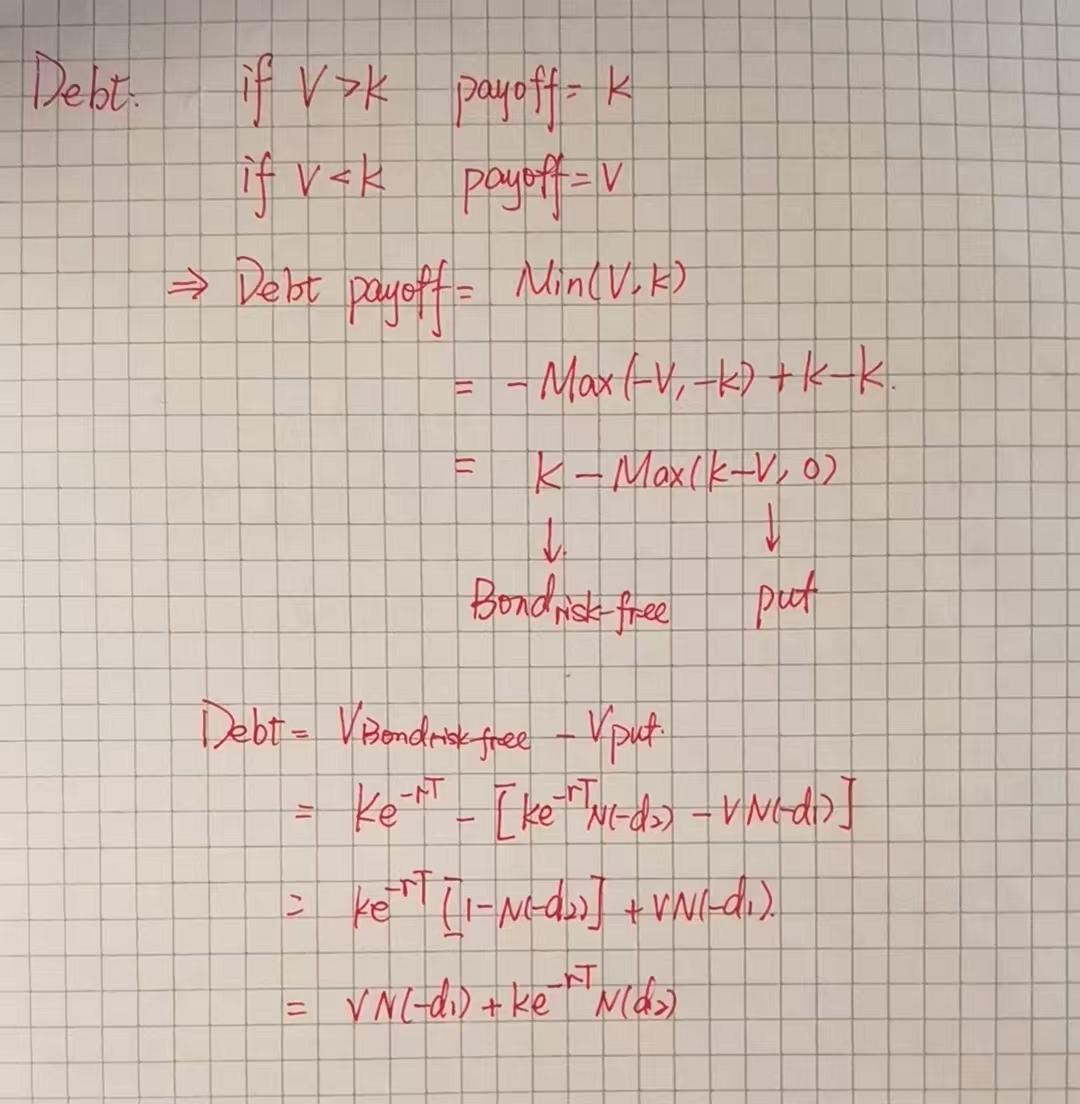 Debt: if V>k payoff= k
if V<k payoff=V
⇒ Debt payoff= Min(V,k)
= -Max(-V,-k)+k-k.
= k-Max(k-V,0)
↓ ↓
Bond risk-free put
Debt= V Bond risk-free - V put.
= ke^-rT - [ke^-rT N(-d2) - VN(-d1)]
= ke^-rT [1-N(-d2)] + VN(-d1).
= VN(-d1)+ke^-rT N(d2)